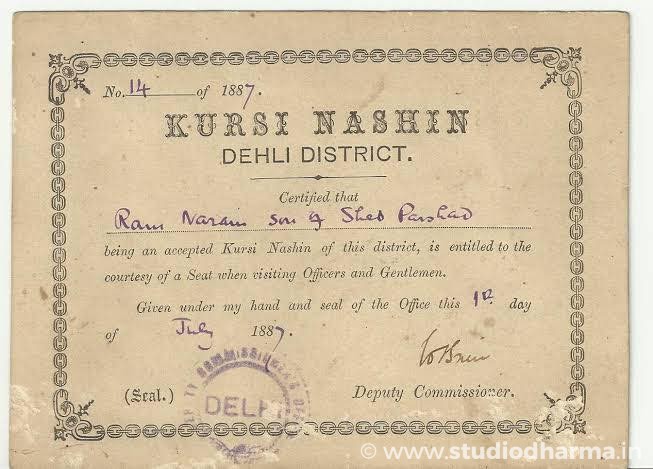 No. 14 of 1887.
KURSI NASHIN
DEHLI DISTRICT.
Certified that
Ram Narain son of Sheo Parshad
being an accepted Kursi Nashin of this district, is entitled to the
courtesy of a Seat when visiting Officers and Gentlemen.
Given under my hand and seal of the Office this 1st day
of July 1887.
(Seal.)
DELHI
Deputy Commissioner.
© www.studiodharma.in